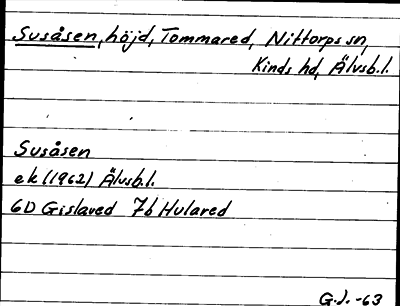 Susåsen, höjd, Tommared, Nittorps sn,
Kinds hd, Älvsb.l.
Susåsen
ek (1962) Älvsb.l.
6D Gislaved 7b Hulared
G.J. -63